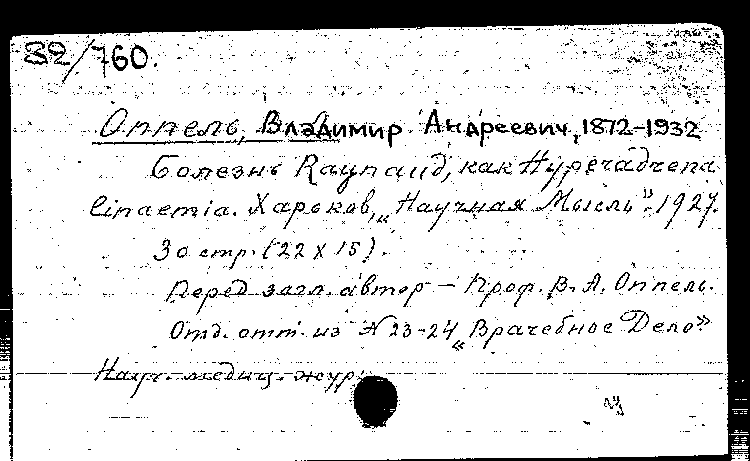 32/760.
Оппель, Владимир Андреевич, 1872-1932
Болезнь Raynaud, как Hyperadrena
linaemia. Харьков, „Научная Мысль". 1927.
30 стр. (22 х 15).
Перед загл. автор — Проф. В. А. Оппель.
Отд. отт. из № 23-24 „Врачебное Дело"
Науч. медиц. жур.